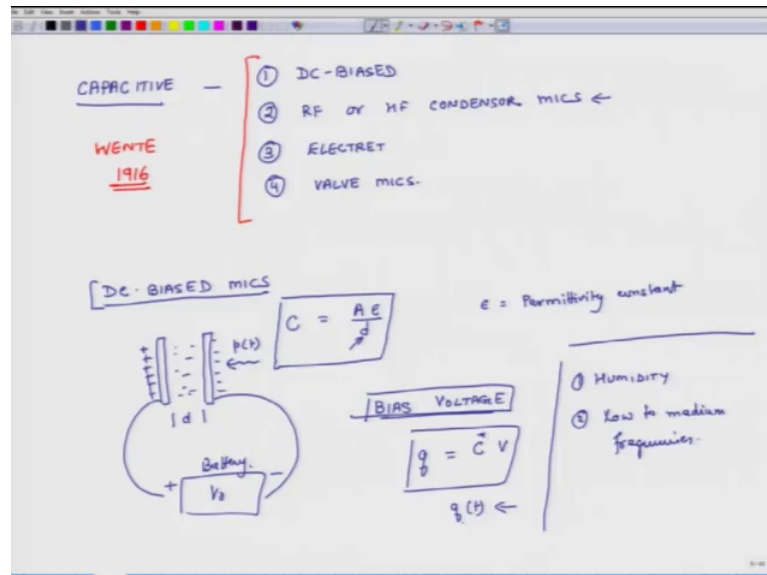 CAPACITIVE —
① DC-BIASED
② RF or HF CONDENSOR MICS ←
③ ELECTRET
④ VALVE MICS.
WENTE
1916
DC-BIASED MICS
C = Aε/d
ε = Permittivity constant
p(t)
d
Battery.
+ −
BIAS VOLTAGE
q = C V
q(t) ←
① HUMIDITY
② Low to medium
frequencies.